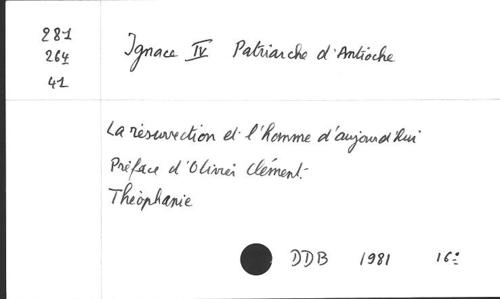 281
264
41
Ignace IV Patriarche d'Antioche
La résurrection et l'homme d'aujourd'hui
Préface d'Olivier Clément.
Théophanie
DDB 1981 16°